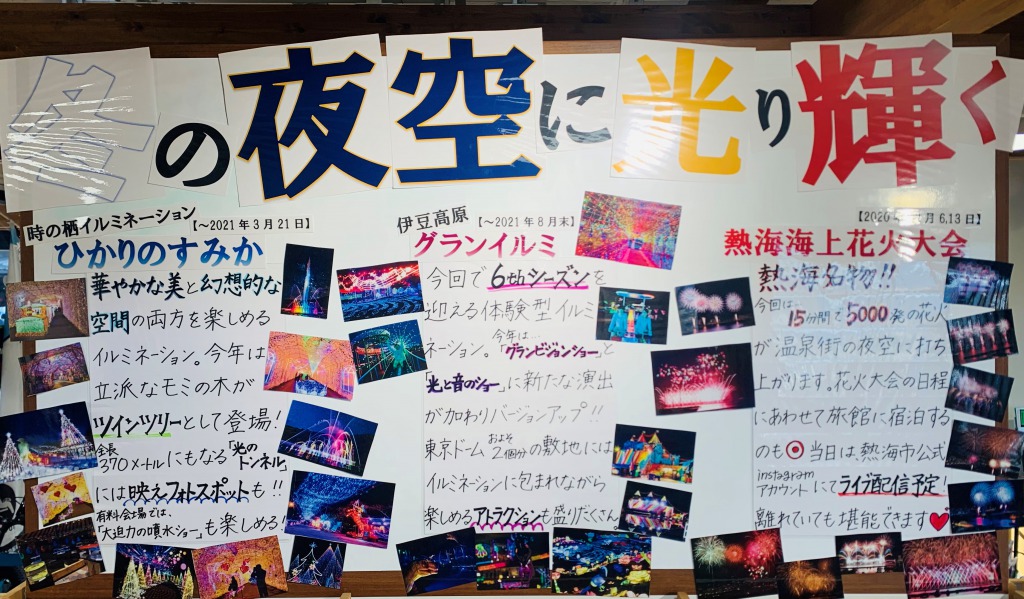 冬の夜空に光り輝く
時の栖イルミネーション【～2021年3月21日】
ひかりのすみか
華やかな美と幻想的な
空間の両方を楽しめる
イルミネーション。今年は
立派なモミの木が
ツインツリーとして登場!
全長
370メートルにもなる「光の
トンネル」
には映えフォトスポットも!!
有料会場では、
「大迫力の噴水ショー」も楽しめる!
伊豆高原【～2021年8月末】
グランイルミ
今回で6thシーズンを
迎える体験型イルミ
ネーション。今年は「グランビジョンショー」と
「光と音のショー」に新たな演出
が加わりバージョンアップ!!
東京ドームおよそ2個分の敷地には
イルミネーションに包まれながら
楽しめるアトラクションも盛りだくさん
月6,13日】
熱海海上花火大会
熱海名物!!
今回は15分間で5000発の花火
が温泉街の夜空に打ち
上がります。花火大会の日程
にあわせて旅館に宿泊する
のも◎当日は、熱海市公式
instagram
アカウントにてライブ配信予定!
離れていても堪能できます♥